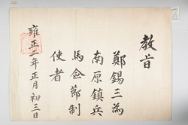 教旨
鄭錫三為
南原鎮兵
馬僉節制
使者
雍正二年正月初三日